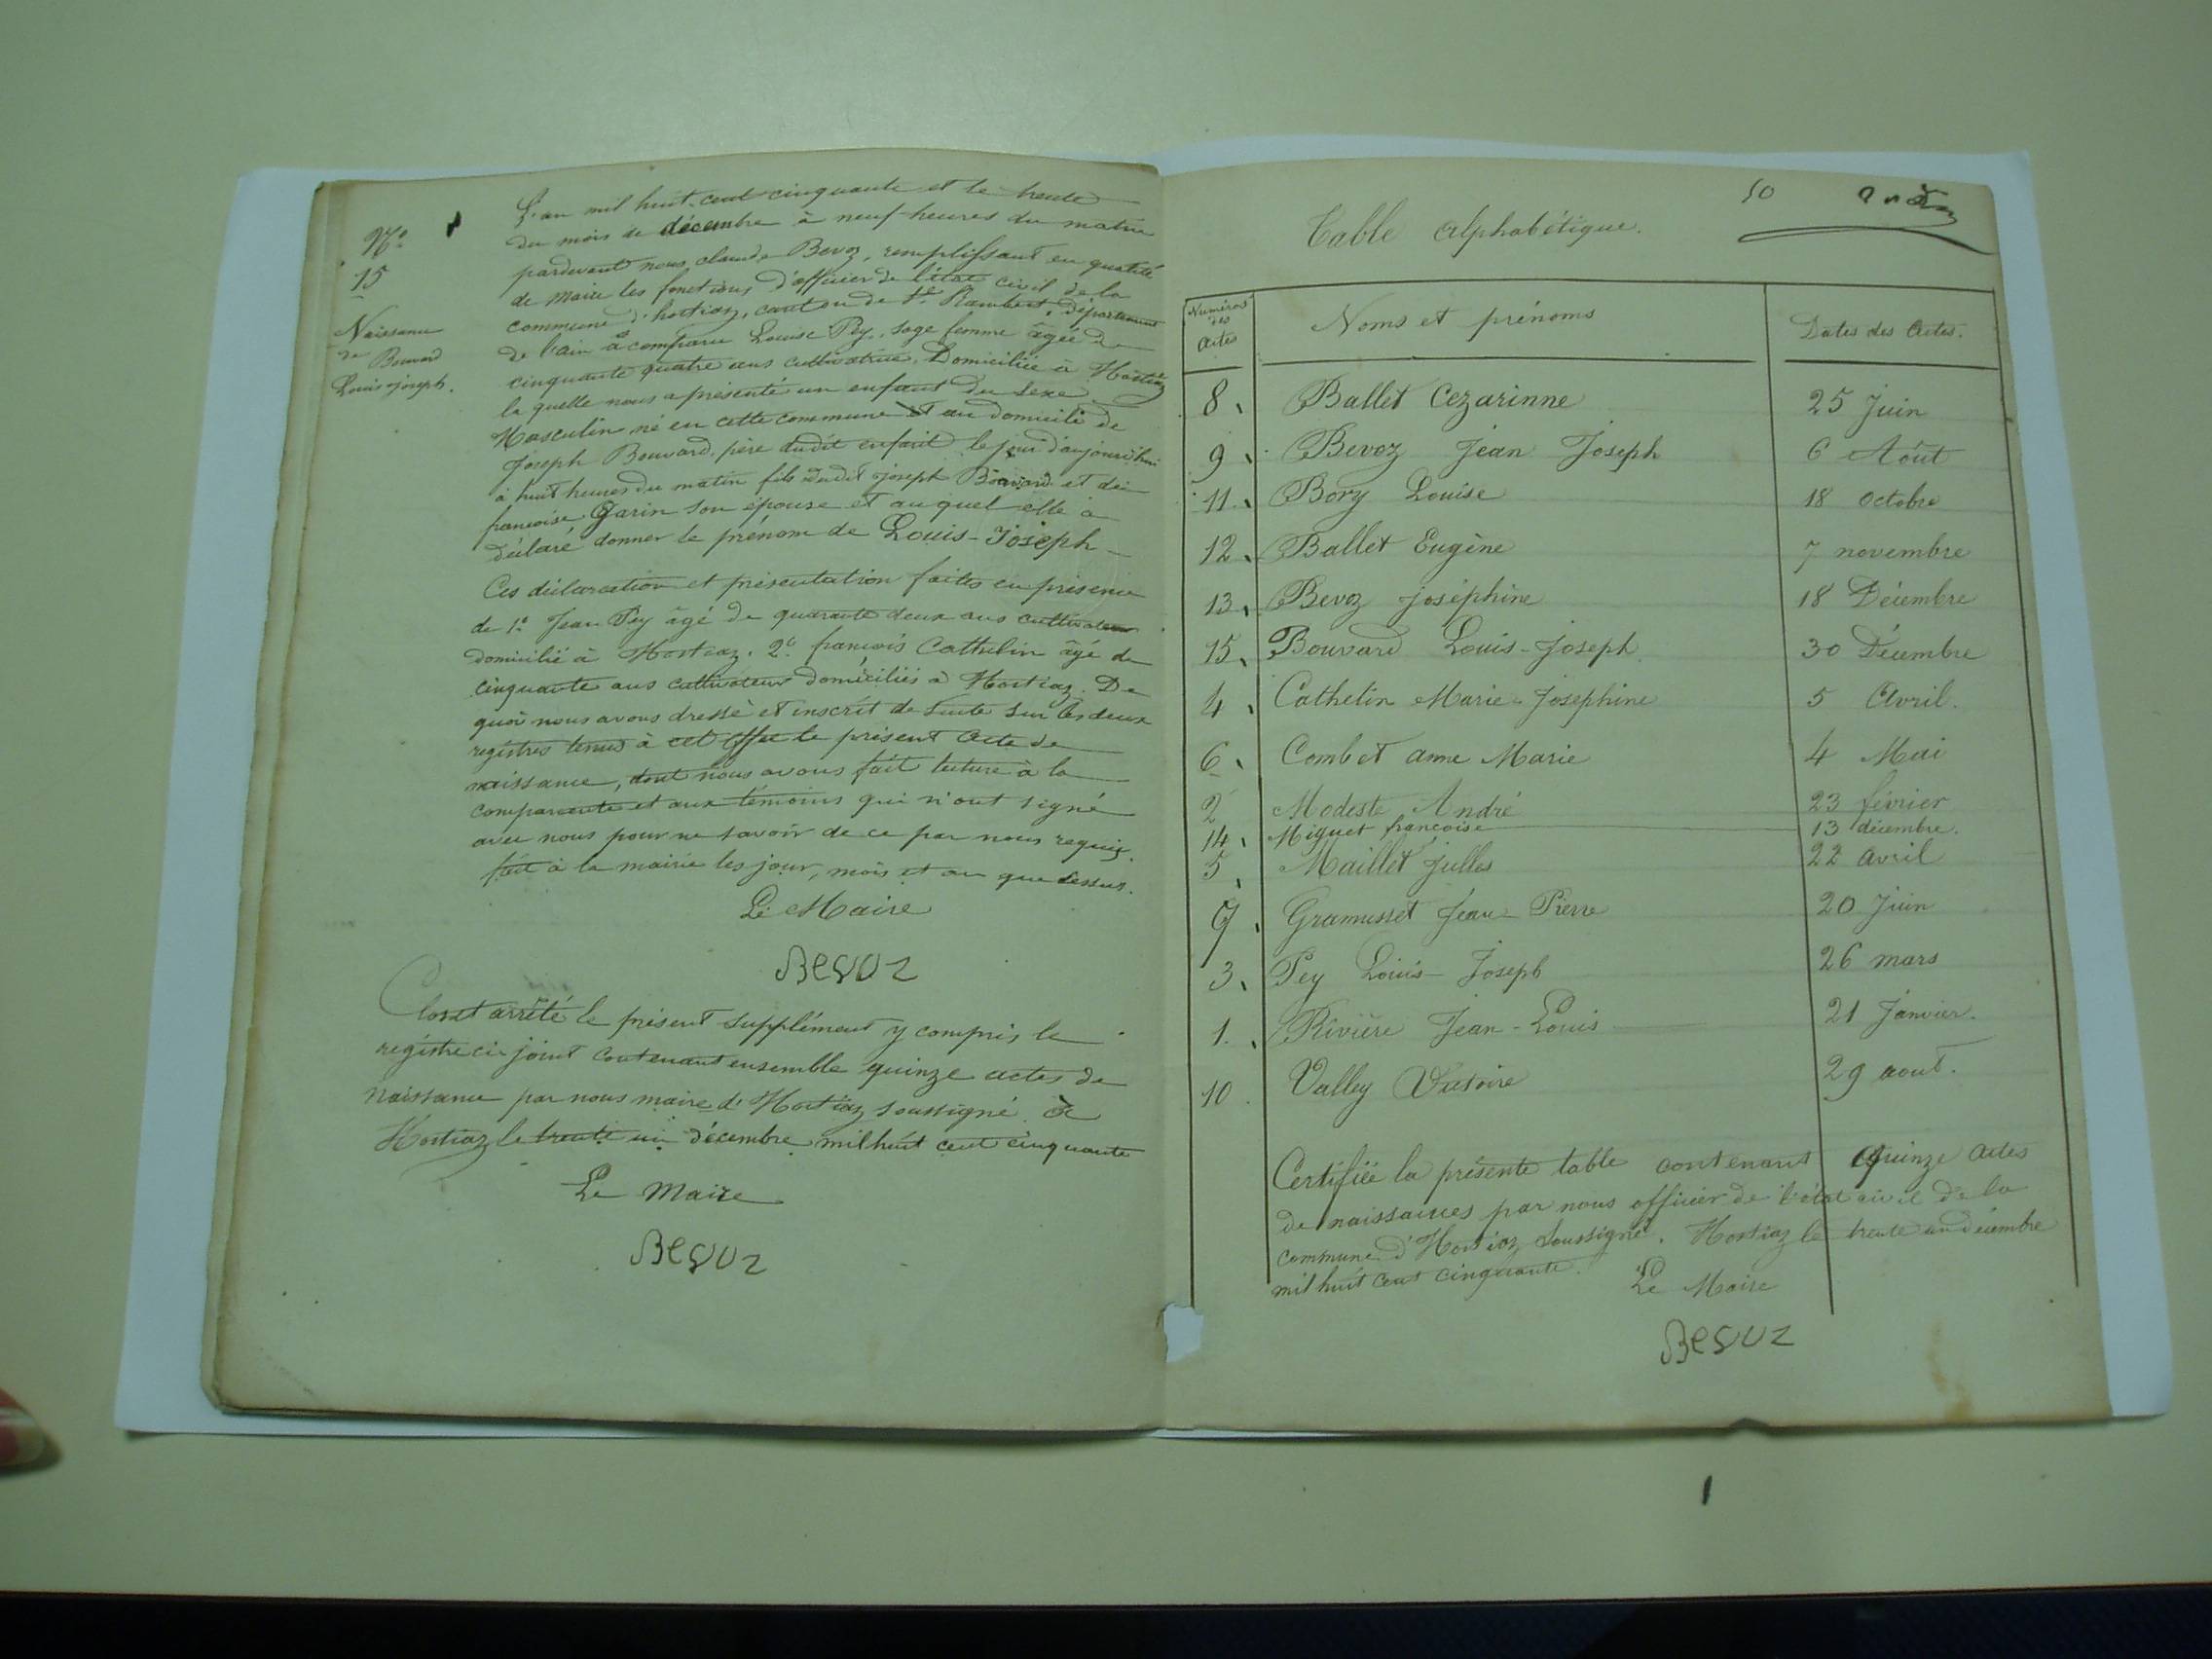 N°
15
Naissance
de Bouvard
Louis joseph.
L'an mil huit-cent cinquante et le trente
du mois de décembre à neuf heures du matin
pardevant nous claude Bevoz, remplissant en qualité
de Maire les fonctions d'officier de l'état civil de la
commune d'hostiaz, canton de St Rambert, Département
de l'ain à comparu Louise Pey, sage femme âgée de
cinquante quatre ans cultivatrice, Domiciliée à Hostiaz
la quelle nous a présenté un enfant du sexe
Masculin né en cette commune et au domicile de
Joseph Bouvard, père dudit enfant le jour d'aujourd'hui
à huit heures du matin fils dudit joseph Bouvard et de
francoise Garin son épouse et au quel elle à
déclaré donner le prénom de Louis-Joseph
Ces déclaration et présentation faites en présence
de 1° Jean Pey âgé de quarante deux ans cultivateur
domicilié à Hostiaz. 2° francois Cathelin âgé de
cinquante ans cultivateur domiciliés à Hostiaz. De
quoi nous avons dressé et inscrit de suite sur les deux
registres tenus à cet effet le présent acte de
naissance, dont nous avons fait lecture à la
comparante et aux témoins qui n'ont signé
avec nous pour ne savoir de ce par nous requis.
fait à la mairie les jour, mois et an que dessus.
Le Maire
Bevoz
Clos et arrêté le présent supplément y compris le
registre ci joint contenant ensemble quinze actes de
Naissance par nous maire d'Hostiaz soussigné à
Hostiaz le trente un décembre mil huit cent cinquante
Le Maire
Bevoz
10
Table alphabétique.
Numéros des actes
Noms et prénoms
Dates des actes.
8. Ballet Cezarinne 25 Juin
9. Bevoz Jean Joseph 6 Août
11. Bory Louise 18 octobre
12. Ballet Eugène 7 novembre
13. Bevoz joséphine 18 Décembre
15. Bouvard Louis-Joseph 30 Décembre
4. Cathelin Marie-Josephine 5 Avril.
6. Combet anne Marie 4 Mai
2 Modeste André 23 février
14. Miguet francoise 13 décembre.
5. Maillet Julles 22 avril
7. Gramusset Jean-Pierre 20 Juin
3. Pey Louis-Joseph 26 mars
1. Rivière Jean-Louis 21 Janvier.
10. Valley Victoire 29 aout.
Certifiée la présente table contenant quinze actes
de naissances par nous officier de l'état civil de la
commune d'Hostiaz soussigné. Hostiaz le trente un décembre
mil huit cent cinquante. Le Maire
Bevoz